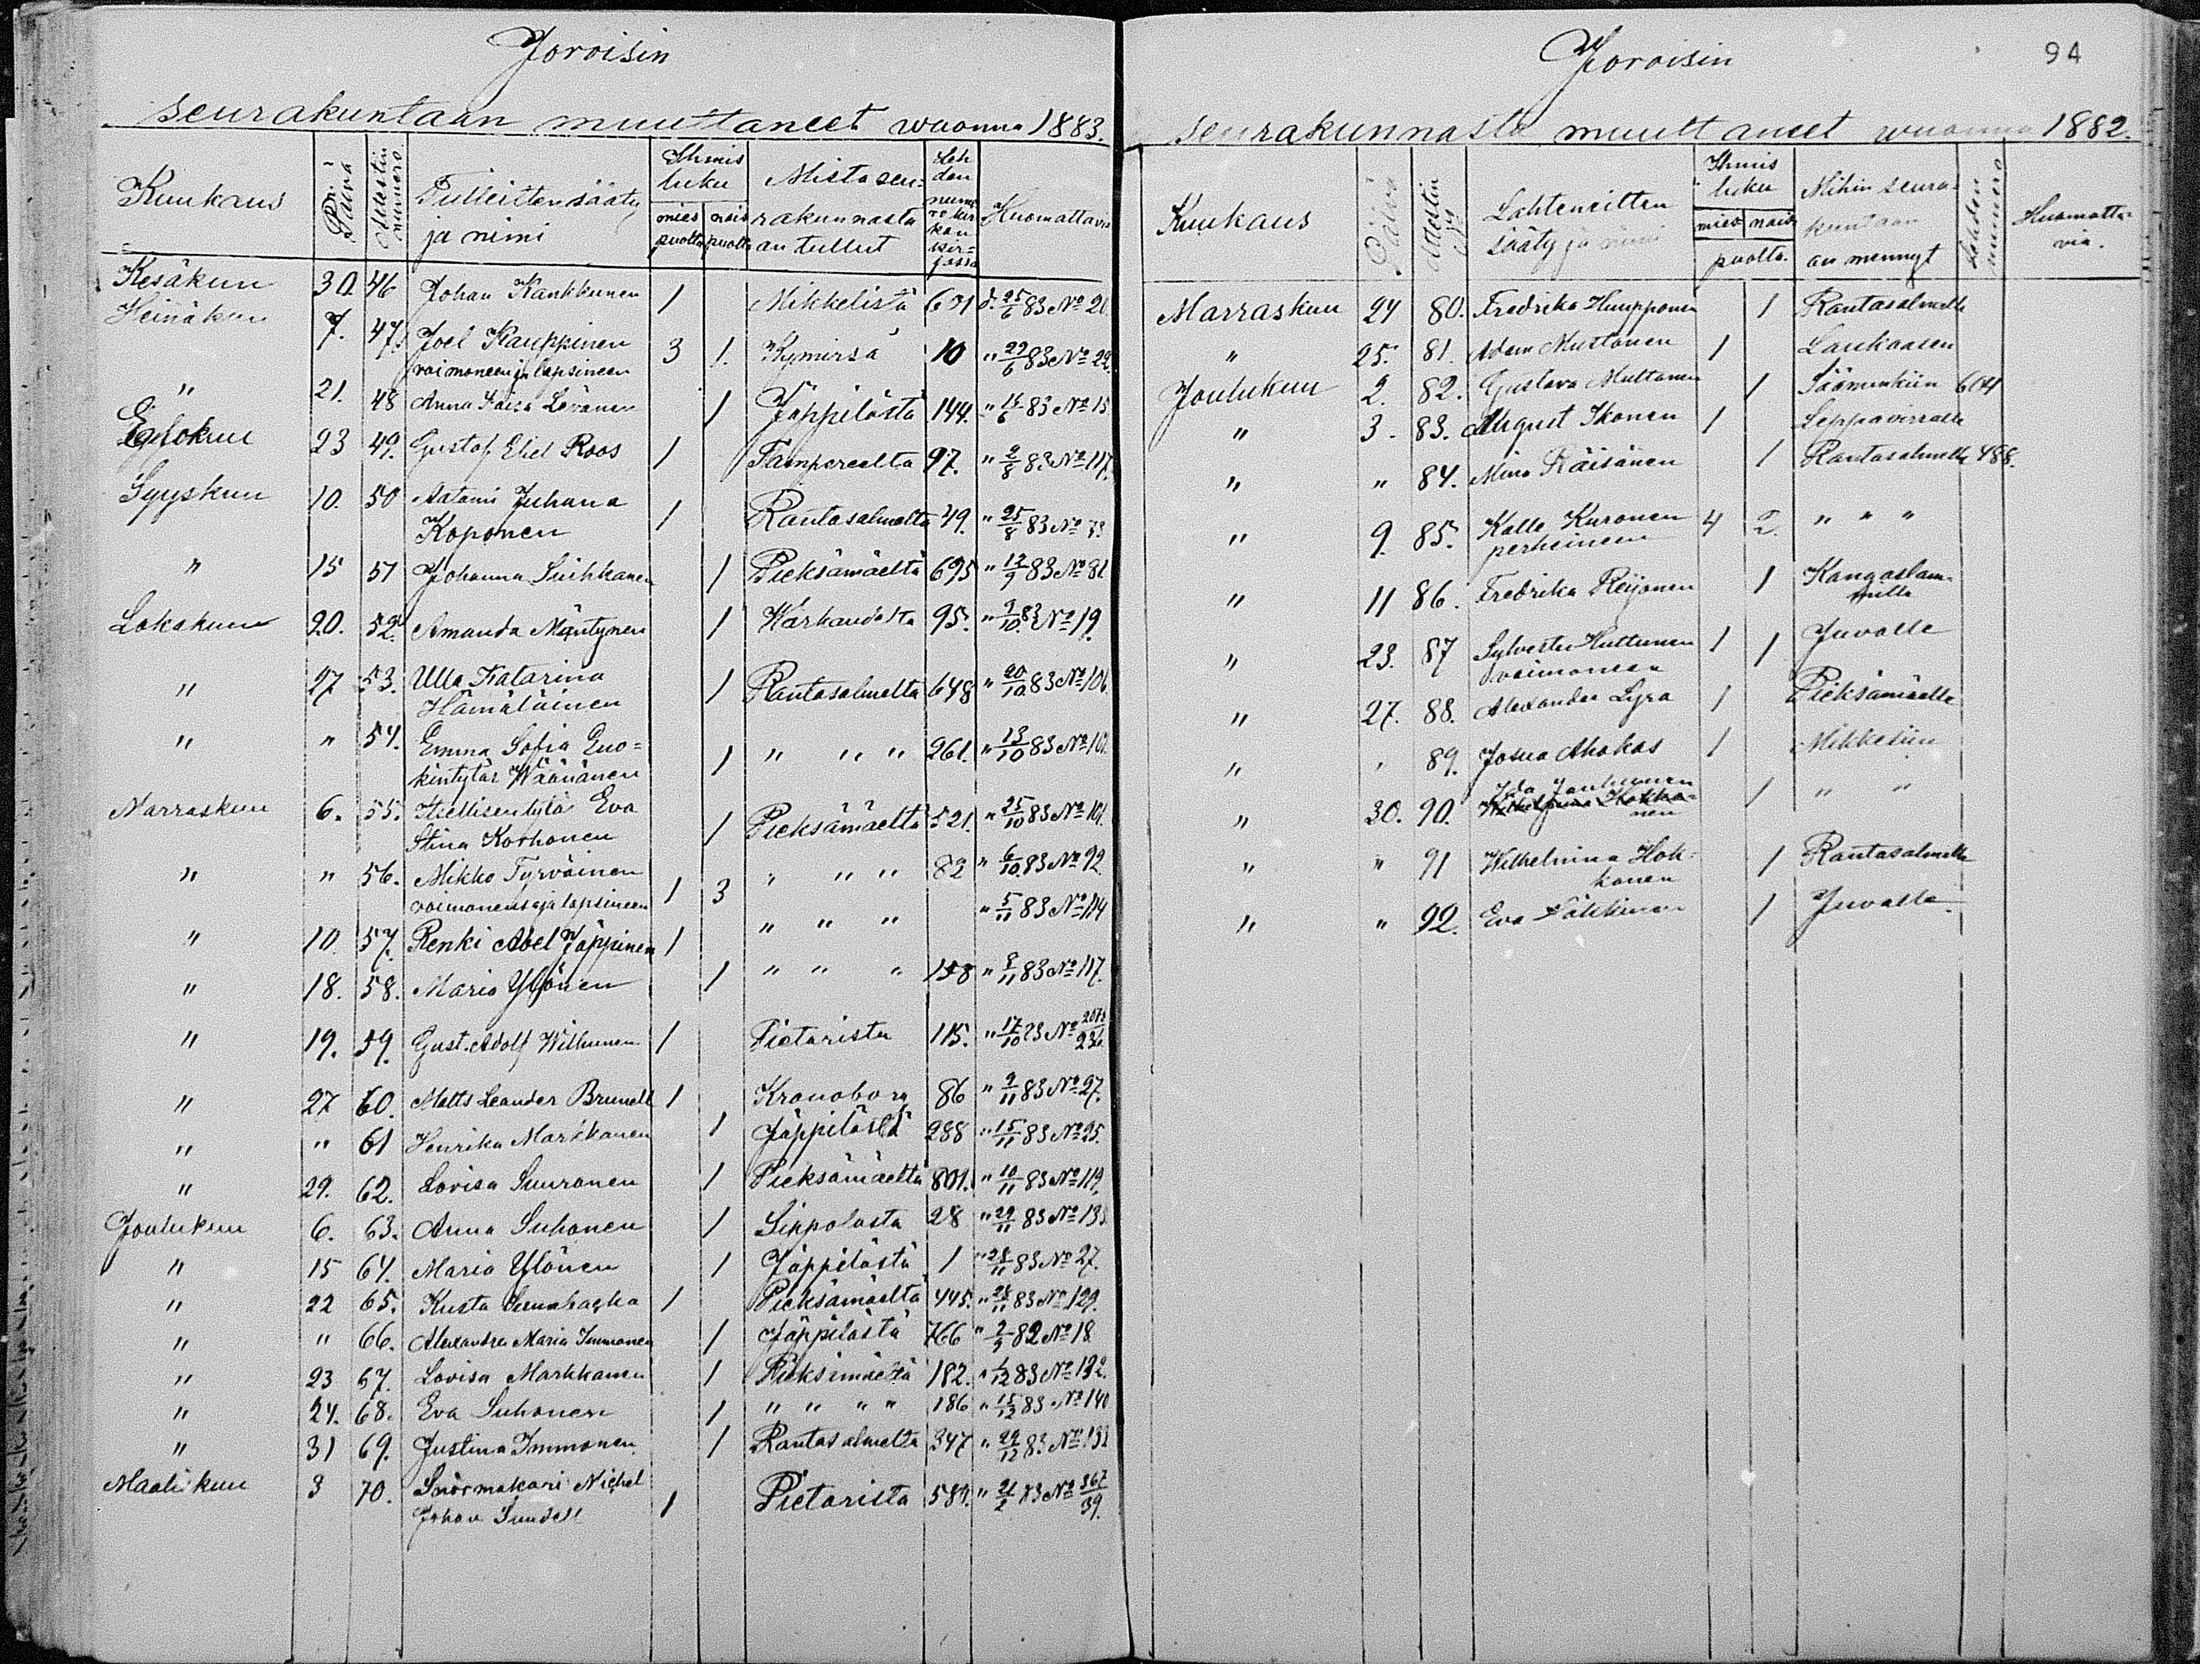 Joroisin
seurakuntaan muuttaneet wuonna 1883.
Kuukaus Päivä Attestin numero Tulleitten sääty ja nimi Ihmis luku mies puolta nais puolta Mista seurakunnasta on tullut Lehden numero kirkon kirjassa Huomattavia
Kesäkuu 30. 46 Johan Kankkunen 1 Mikkelistä 601 d. 25/6 83 No 20
Heinäkuu 7. 47. Joel Kauppinen 3 1. Kymirsä 10 " 29/6 83 No 29.
vaimoneen ja lapsineen
" 21. 48 Anna Kaisa Lövänen 1 Jäppilästä 144. " 16/6 83 No 15
Elokuu 23 49. Gustaf Eliel Roos 1 Tampereelta 97. " 2/8 83 No 117.
Syyskuu 10. 50 Aatami Juhana 1 Rantasalmelta 49. " 25/8 83 No 73
Koponen
" 15 51 Johanna Suihkanen 1 Pieksämäeltä 695 " 12/9 83 No 81
Lokakuu 20. 52. Amanda Mäntynen 1 Warkaudesta 95. " 9/10 83 No 19.
" 27 53. Ulla Katarina 1 Rantasalmelta 648 " 20/10 83 No 106.
Hämäläinen
" " 54. Emma Sofia Enokintytär Wäänänen 1 " " " 261. " 13/10 83 No 101.
Marraskuu 6. 55. Itsellisentytär Eva 1 Pieksämäeltä 521. " 25/10 83 No 101.
Stina Korhonen
" " 56. Mikko Tyrväinen 1 3 " " " 82 " 6/10 83 No 92
vaimonensa ja lapsineen
" 10. 57. Renki Abel Jäppinen 1 " " " " 5/11 83 No 114
" 18. 58. Maria Ylönen 1 " " " 158 " 8/11 83 No 117.
" 19. 59. Gust. Adolf Wilhunen 1 Pietarista 115. " 17/10 83 No
" 27 60. Matts Leander Brunell 1 Kronoborg 86 " 9/11 83 No 27.
" " 61 Henrika Markkanen 1 Jäppilästä 288 " 15/11 83 No 25.
" 29. 62. Lovisa Suuronen 1 Pieksämäeltä 801. " 10/11 83 No 119.
Joulukuu 6. 63. Anna Suhonen 1 Sippolasta 28 " 29/11 83 No 133
" 15 64. Maria Ylönen 1 Jäppilästä 1 " 28/11 83 No 27.
" 22 65. Kusta 1 Pieksämäeltä 445. " 28/11 83 No 129.
" " 66. Alexandra Maria Immonen 1 Jäppilästä 766 " 2/9 82 No 18
" 23 67. Lovisa Markkanen 1 Pieksämäeltä 182. " 1/12 83 No 132.
" 24. 68. Eva Suhonen 1 " " " " 186 " 15/12 83 No 140
" 31 69. Justina Immonen 1 Rantasalmelta 347 " 29/12 83 No 132
Maaliskuu 3 70. Snörmakari Michel 1 Pietarista 584. " 21/2 83 No 367/39.
Johan Sundell
94
Joroisin
seurakunnasta muuttaneet wuonna 1882.
Kuukaus Päivä Attestin No Lähteneitten sääty ja nimi Ihmis luku mies nais puolta. Mihin seurakuntaan on mennyt Lehden numero Huomattavia.
Marraskuu 24 80. Fredrika Humpponen 1 Rantasalmelle
" 25. 81. Adam Mustonen 1 Laukaasen
Joulukuu 2. 82. Gustava Multanen 1 Sääminkiin 604
" 3. 83. August Ikonen 1 Leppävirralle
" " 84. Mina Räisänen 1 Rantasalmelle 488.
" 9. 85. Kalle Kuronen 4 2. " " "
perheineen
" 11 86. Fredrika Reijonen 1 Kangaslammille
" 23. 87 Sylvester Huttunen 1 1 Juvalle
vaimoneen
" 27. 88. Alexander Lyra 1 Pieksämäelle
" " 89. Josua Ahokas 1 Mikkeliin
Ida Janhunen
" 30. 90. Wilhelmina Hokkanen 1 " "
" " 91 Wilhelmina Hokkanen 1 Rantasalmelle
" " 92. Eva 1 Juvalle